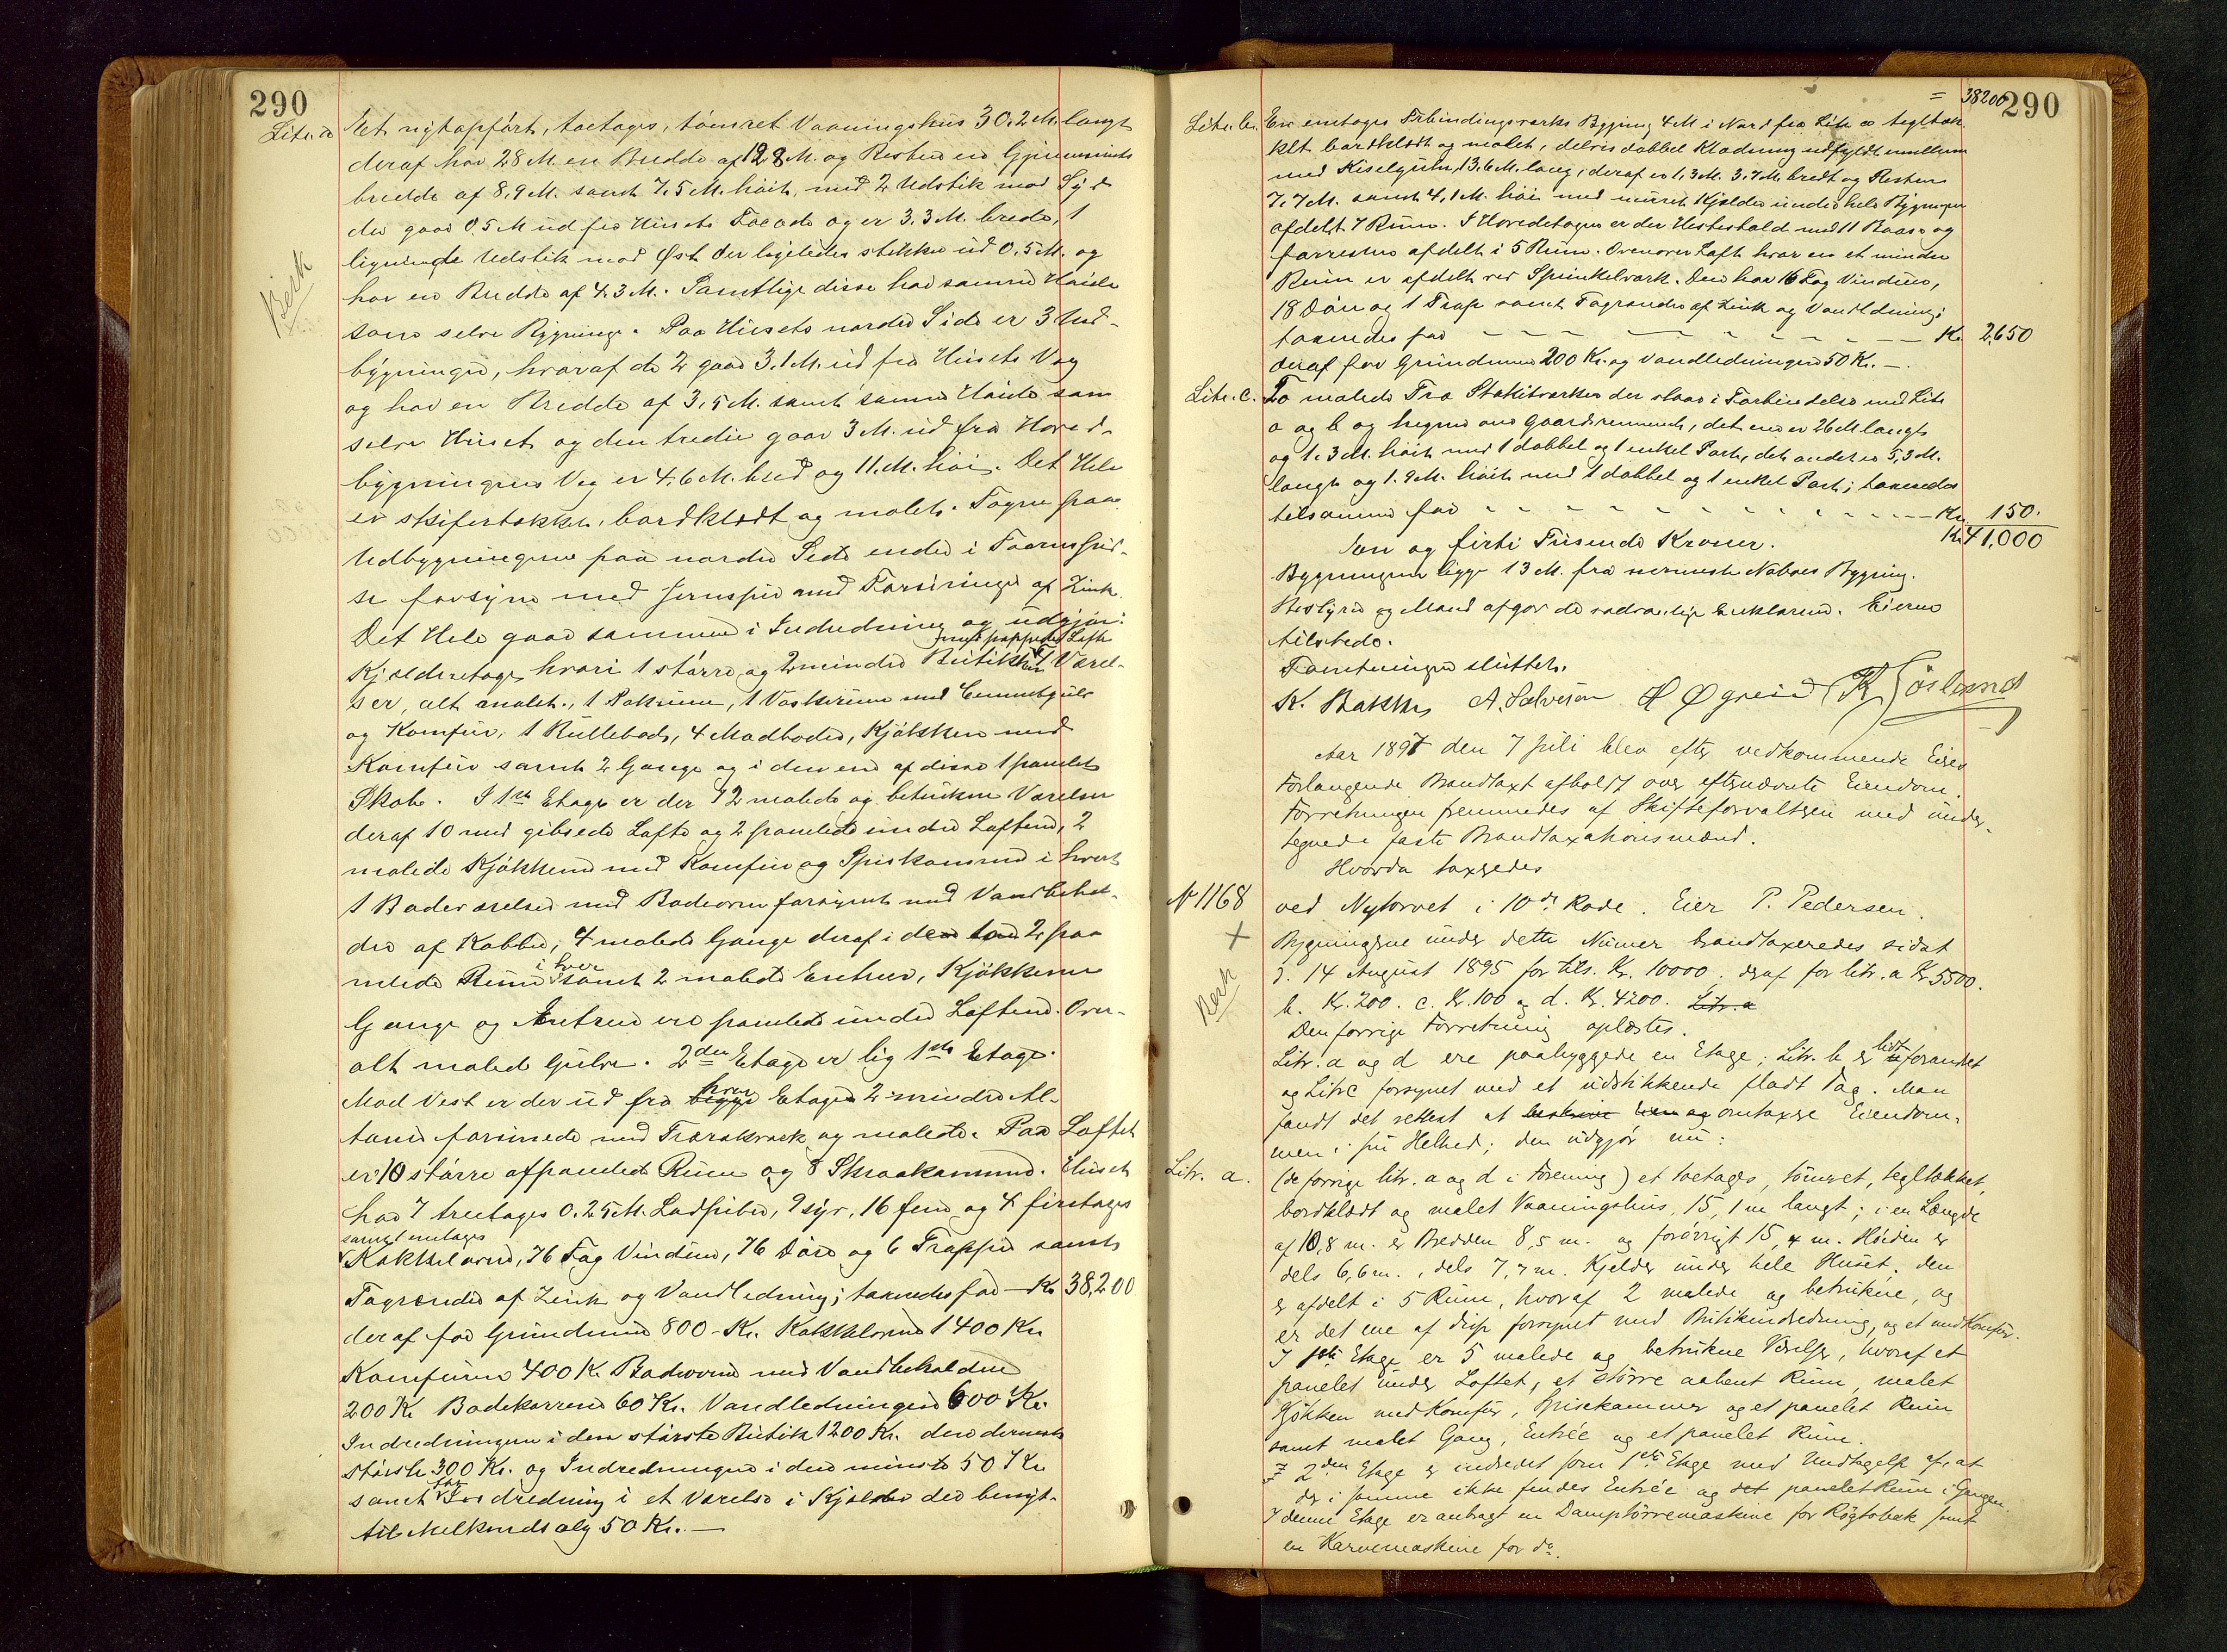 290
Litr. a Et nyt opført, toetages, tømret Vaaningshus 30,2 M. langt
deraf har 28 M. en Bredde af 12,8 M. og Resten en Gjennemsnits
bredde af 8,9 M. samt 7,5 M. høit, med 2 Udstik mod Syd
der gaar 0,5 M ud fra Husets Facade og er 3,3 M. brede, 1
lignende Udstik mod Øst der ligeledes stikker ud 0,5 M. og
har en Bredde af 4,3 M. Samtlige disse har samme Høide
Besk
som selve Bygningen. Paa Husets nordre Side er 3 Ud-
bygninger, hvoraf de 2 gaar 3,1 M. ud fra Husets Væg
og har en Bredde af 3,5 M. samt samme Høide som
selve Huset og den tredie gaar 3 M. ud fra Hoved-
bygningens Væg er 4,6 M. bred og 11. M. høi. Det Hele
er skifertækket, bordklædt og malet. Tagene paa
Udbygningerne paa nordre Side ender i Taarnspid-
se forsynt med Jernspir med Forsiringer af Zink.
Det Hele gaar sammen i Indredning og udgjør:
med pappede Lofte
Kjælderetage, hvori 1 større og 2 mindre Butikker 4 Værel-
ser, alt malet., 1 Pakrum, 1 Vaskerum med Cementgulv
og Komfur, 1 Rullebod, 4 Madboder, Kjøkken med
Komfur samt 2 Gange og i den ene af disse 1 panelet
Skab. I 1ste Etage er der 12 malede og betrukne Værelser
deraf 10 med gibsede Lofte og 2 panelede under Loftene, 2
malede Kjøkkener med Komfur og Spiskammer i hvert
1 Badeværelse med Badeovn forsynt med Vandbehol-
der af Kobber, 4 malede Gange deraf i den ene 2 pa
nelede Rum i hver samt 2 malede Entreer, Kjøkkener
Gange og Entreer ere panelede under Loftene. Over-
alt malede Gulve. 2den Etage er lig 1ste Etage.
Mod Vest er der ud fra begge hver Etage 2 mindre Al-
taner forsinede med Trærækværk og malede. Paa Loftet
er 10 større afpanelede Rum og 8 Skraakammere. Huset
har 7 treetages 0.25 M. Ladpiber, 9 syv, 16 fem og 4 firetages
samt 1 enetages
Kakkelovne, 76 Fag Vinduer, 76 Døre og 6 Trapper samt
Tagrender af Zink og Vandledning; taxeredes for - Kr 38,200
deraf for Grundmur 800 - Kr. Kakkelovne 1400 Kr
Komfurer 400 Kr Badeovne med Vandbeholdere
200 Kr Badekarrene 60 Kr. Vandledningen 600 Kr.
Indredningen i den største Butik 1200 Kr. den dernæst
største 300 Kr. og Indredningen i den minste 50 Kr
samt for Indredning i et Værelse i Kjælder der benyt-
til Melkeudsalg 50 Kr. -
290
= 38200
Litr. b. En enetages Udbindingsværks Bygning 4 M i Nord fra Litr a tegltæk-
ket bordklædt og malet, delvis dobbel Klædning udfyldt imellem
med Kiselguhr, 13,6 M. lang, deraf er 1,3 M. 3,7 M. bredt og Resten
7,7 M. samt 4,1 M. høi med muret Kjælder under hele Bygningen
afdelt 7 Rum. I Hovedetagen er der Hestestald med 11 Baase og
forresten afdelt i 5 Rum. Ovenover Loft hvor en et mindre
Rum er afdelt ved Sprinkelværk. Den har 16 Fag Vinduer,
18 Døre og 1 Trap samt Tagrender af Zink og Vandledning;
taxeredes for - - - - - - - - - - Kr. 2,650
deraf for Grundmur 200 Kr. og Vandledningen 50 Kr. -
Litr. c. To malede Træ Stakitværker der staar i Forbindelse med Litr
a og b og hegner om Gaardsrummet, det ene er 26 M langt
og 1,3 M. høit med 1 dobbel og 1 enkel Port, det andet er 5,3 M.
langt og 1.9 M. høit med 1 dobbel og 1 enkel Port; taxeredes
tilsammen for - - - - - - - - - - - Kr. 150.
Een og firti Tusende Kroner. Kr 41,000
Bygningerne ligge 13 M. fra nærmeste Nabos Bygning.
Bestyrer og Mænd afgav de sædvanlige Erklæringer. Eieren
tilstede.
Taxtningen sluttet.
K. Bakke A. Salvesen H Øgreid K Gørland
Aar 1897 den 7 Juli blev efter vedkommende Eiers
Forlangende Brandtaxt afholdt over efternævnte Eiendom.
Forretningen fremmedes af Skifteforvalteren med under-
tegnede faste Brandtaxationsmænd.
Hvorda taxeredes
№ 1168 ved Nytorvet i 10de Rode. Eier P. Pedersen.
+
Bygningerne under dette Numer brandtaxeredes sidst
d. 14 August 1895 for tils. Kr. 10000, deraf for litr. a Kr. 5500.
Besk
b. Kr. 200. c. Kr. 100 og d. Kr. 4200. Litr. a
Den forrige Forretning oplæstes.
Litr. a og d ere paabyggede en Etage; Litr. b er lidt forandret
og Litr c forsynet med et udstikkende fladt Tag. Man
fandt det rettest at beskrive dem og omtaxere Eiendom-
men i sin Helhed; den udgjør nu:
Litr. a. (de forrige litr. a og d i Forening) et toetages, tømret, tegltækket,
bordklædt og malet Vaaningshus, 15,1 m langt; i en Længde
af 10,8 m. er Bredden 8,5 m. og forøvrigt 15,4 m. Høiden er
dels 6,6 m., dels 7,7 m. Kjelder under hele Huset, den
er afdelt i 5 Rum, hvoraf 2 malede og betrukne, og
er det ene af disse forsynet med Butikindredning, og et med Komfur.
I 1ste Etage er 5 malede og betrukne Værelser, hvoraf et
panelet under Loftet, et større aabent Rum, malet
Kjøkken med Komfur, Spisekammer og et panelet Rum
samt malet Gang, Entrée og et panelet Rum.
I 2den Etage er indredet som 1ste Etage med Undtagelse af, at
der i samme ikke findes Entrée og det panelet Rum i Gangen.
I denne Etage er anbragt en Damptørremaskine for Røgtobak samt
en Karvemaskine for do.